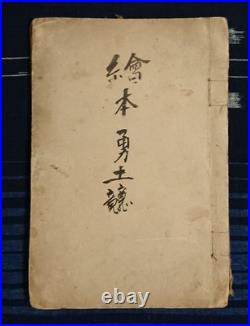 繪本勇士
© 123